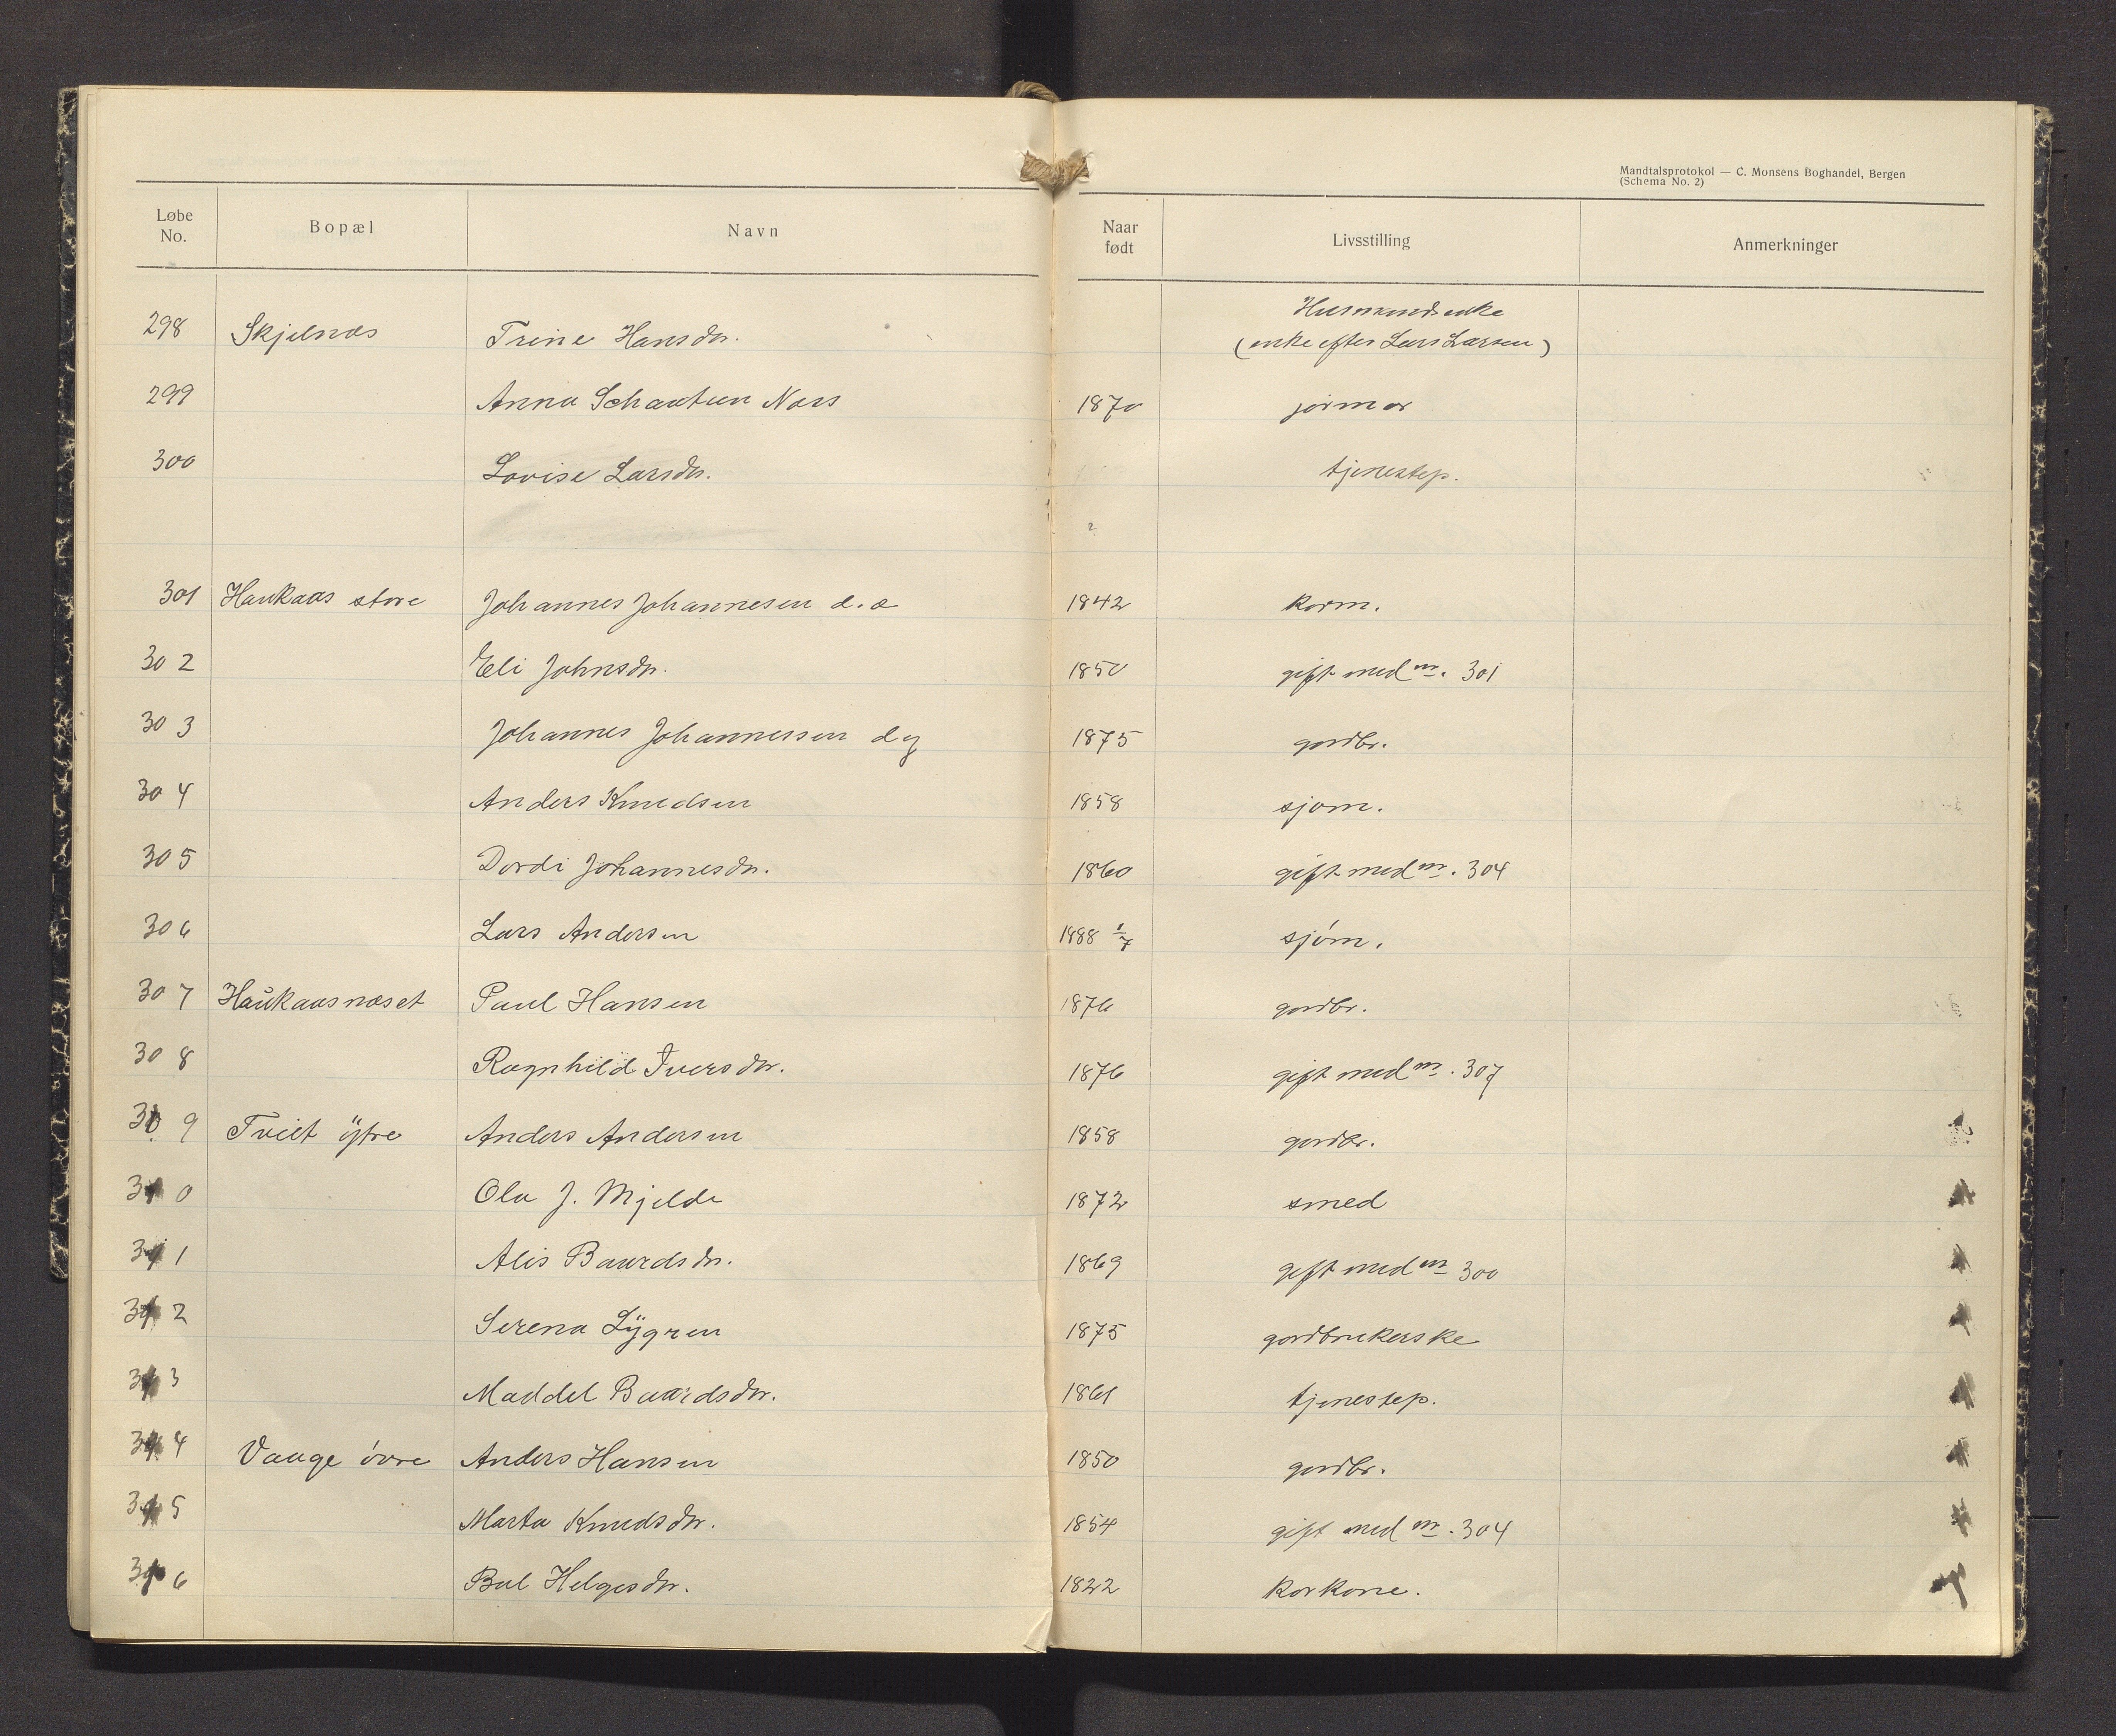 Mandtalsprotokol — C. Monsens Boghandel, Bergen
(Schema No. 2)
Løbe No. Bopæl Navn Naar født Livsstilling Anmerkninger
298 Skjelnæs Trine Hansdr. Husmandsenke
(enke efter Lars Larsen)
299 Anna Schanteen Næss 1870 jormor
300 Lovise Larsdr. tjenestep.
301 Haukaas store Johannes Johannesen d.æ 1842 korm.
302 Eli Johnsdr. 1850 gift med nr. 301
303 Johannes Johannessen d y 1875 gardbr.
304 Anders Knudsen 1858 sjøm.
305 Dordi Johannesdr. 1860 gift med nr. 304
306 Lars Andersen 1888 1/7 sjøm.
307 Haukaasnæset Paul Hansen 1876 gardbr.
308 Ragnhild Iversdr. 1876 gift med nr. 307
309 Tveit ytre Anders Andersen 1858 gardbr.
310 Ola J. Mjelde 1872 smed
311 Alis Baardsdr. 1869 gift med nr 300
312 Serena Lygren 1875 gardbrukerske
313 Maddel Baardsdr. 1861 tjenestep.
314 Vaage övre Anders Hansen 1850 gardbr.
315 Marta Knudsdr. 1854 gift med nr. 304
316 Bol Helgesdr. 1822 Korkone.